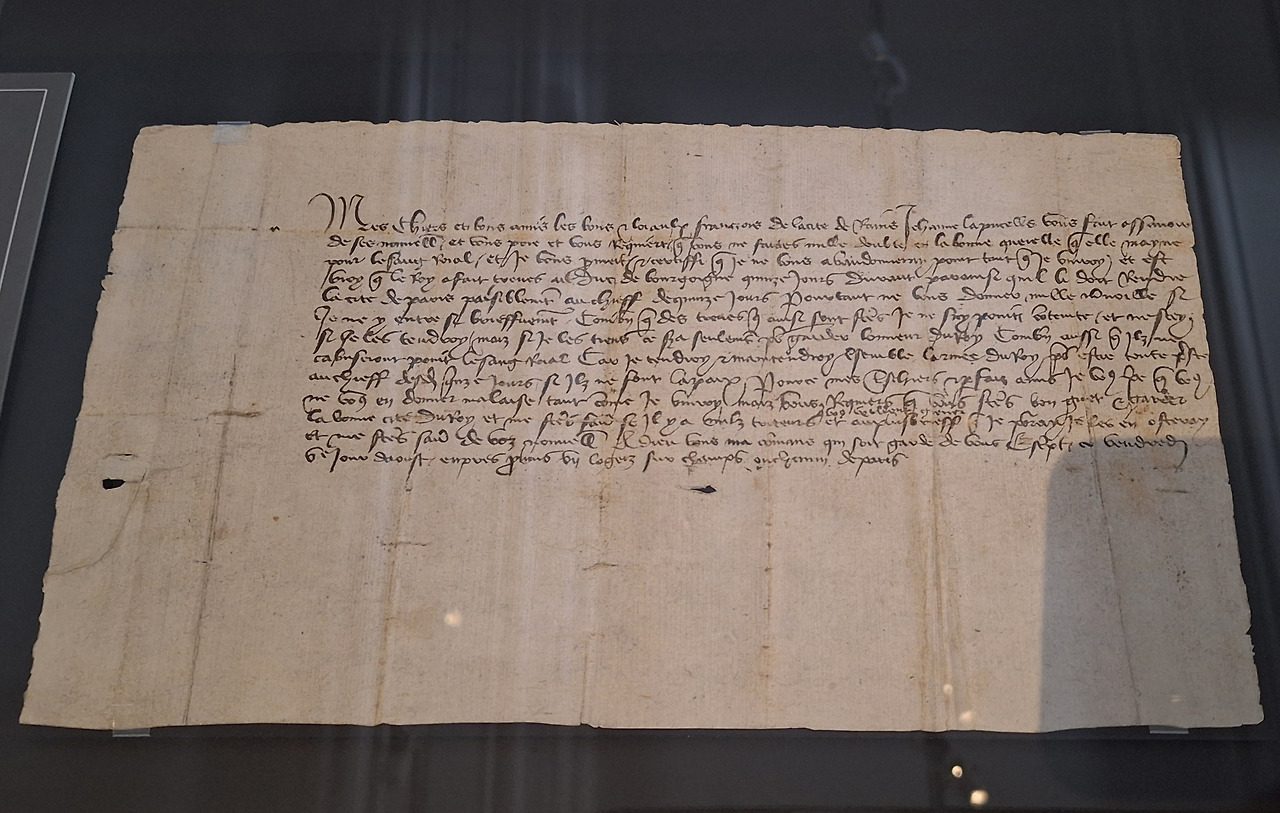 Mes chiers et bons amis les bons et loiaulx franczois de la cite de Rains Jehanne la pucelle vous fait assavoir
de ses nouvelles et vous prie et vous requiert que vous ne faictes nulle doubte en la bonne querelle que elle mayne
pour le sang roial et je vous promect et certiffi que je ne vous abandonneray point tant que je vivray et est
vroy que le Roy a fait treves au duc de bourgoigne quinze jours durant par ainsi qu'il le doet Rendre
la cite de paris paisiblement au chieff de quinze jours Pourtant ne vous donnez nulle si
Je ne y entre si brieffment Combien que des treves qui ainsi sont faictes je ne soy point contente et ne scey
si je les tendroy maiz si je les tiens ce sera seulement pour garder lonneur du Roy Combien aussi que ilz ne
cabuseront point le sang Roial Car je tendroy et maintendroy ensemble larmee du Roy pour estre toute preste
au chieff desdits quinze jours si ilz ne font la paix Pource mes tres chiers et parfaiz amis je vous pri que vous
ne vous en donner malaise tant comme je vivray maiz vous requiers que vous faictes bon guet et garder
la bonne cite du Roy et me faictes savoir se il y a nulz triteurs et au plus brieff que je porray je les en osteray
et me faictes savoir de voz nouvelles A dieu vous commans qui soit garde de vous Escript ce vendredi
Ve jour daoust enpres provins logeiz sur champs ou chemin de paris